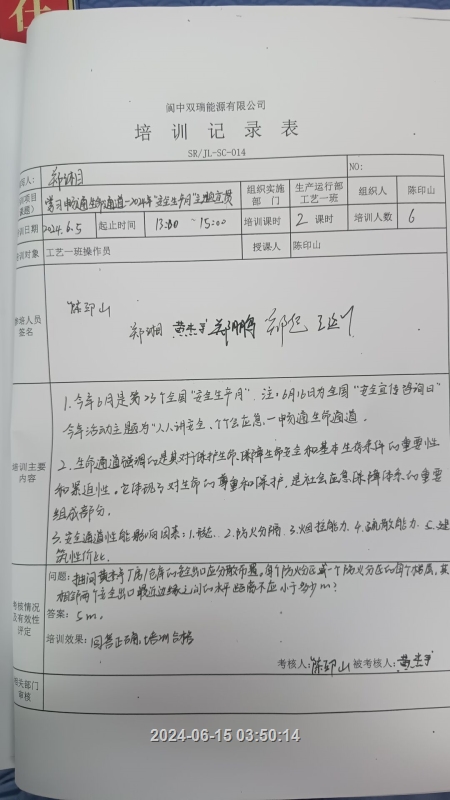 任
阆中双瑞能源有限公司
培 训 记 录 表
SR/JL-SC-014
人: 郑湘 NO:
学习畅通生命通道-2024年"安全生产月"主题宣贯 组织实施部门 生产运行部工艺一班 组织人 陈印山
培训日期 2024.6.5 起止时间 13:00 ~ 15:00 培训课时 2 课时 培训人数 6
培训对象 工艺一班操作员 授课人 陈印山
参培人员签名
陈印山
郑湘
培训主要内容
1. 今年6月是第23个全国"安全生产月". 注: 6月16日为全国"安全宣传咨询日"
今年活动主题为"人人讲安全、个个会应急—畅通生命通道.
2. 生命通道强调的是其对于保护生命、保障生命安全和基本生存条件的重要性
和紧迫性。它体现了对生命的尊重和保护,是社会应急保障体系的重要
组成部分.
3. 安全通道性能影响因素: 1. 2. 防火分隔. 3. 烟控能力. 4. 疏散能力. 5. 建
筑性价比.
考核情况及有效性评定
问题: 抽问 厂房/仓库的安全出口应分散布置。每个防火分区或一个防火分区的每个楼层,其
相邻两个安全出口最近边缘之间的水平距离不应小于多少m?
答案: 5m.
培训效果: 回答正确,培训合格
考核人: 陈印山 被考核人:
相关部门审核
2024-06-15 03:50:14